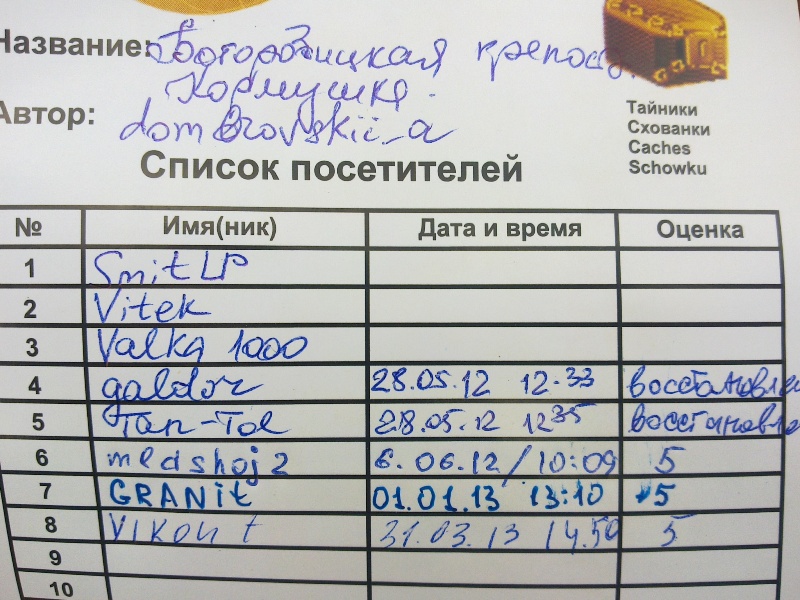 Название: Богородицкая крепос
Кормушка.
Автор: dombrovskii_a
Тайники
Схованки
Caches
Schowku
Список посетителей
№ Имя(ник) Дата и время Оценка
1 Smit LP
2 Vitek
3 Valka 1000
4 galdor 28.05.12 12-33 восстановле
5 Tan-Tol 28.05.12 12 35 восстановле
6 medshoj2 6.06.12/10:09 5
7 GRANit 01.01.13 13:10 5
8 Vikont 31.03.13 14.50 5
9
10